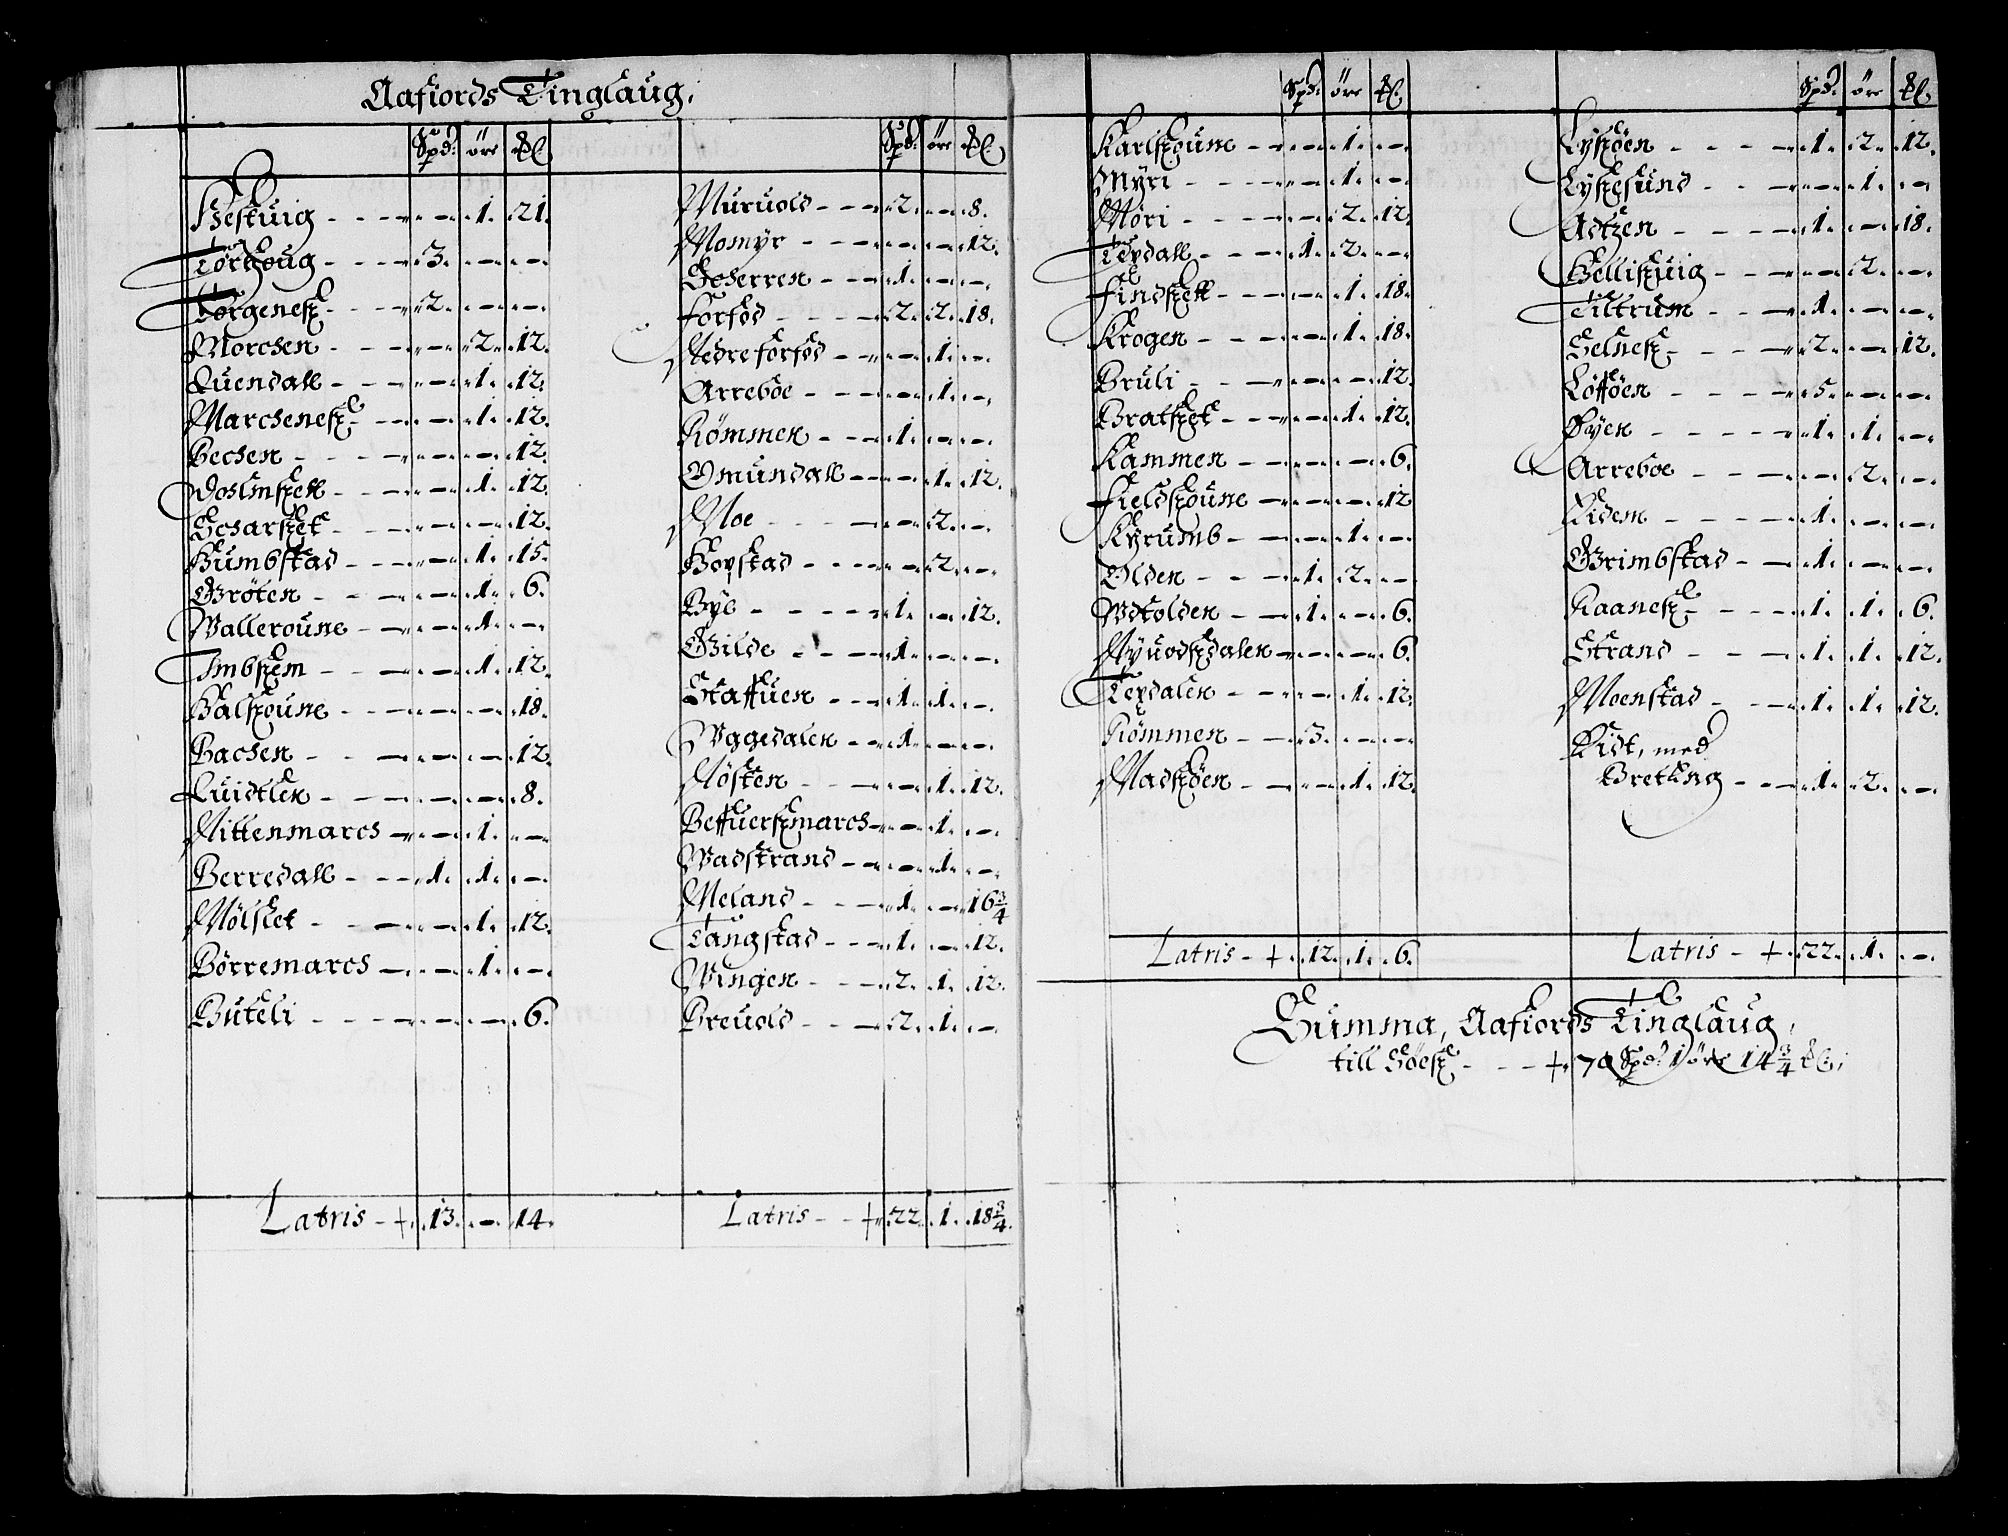 Aafiords Tinglaug,
Spd: öre
Hestuig - - - 1. 21.
Torhoug - - - 3. - -
Torgenes - - 2. - -
Morchen - - - 2. 12.
Quendall - - - 1. 12.
Marchenes - - - 1. 12.
Bechen - - - 12.
Dolmsett - - - 1. 12.
Scharset - - - 12.
Humbstad - - - 1. 15.
Gröten - - - 1. 6.
Walleroune - - - 1. -
Imbsem - - - 1. 12.
Halsoune - - - 18.
Bachen - - - 12.
Quidtlen - - - 8.
Nittenmarch - - 1. -
Berredall - - - 1. 1. -
Mölslet - - - 1. 12.
Börremarch - - 1. -
Buteli - - - 6.
Latris - + 13. - 14.
Spd: öre
Muruold - - - 2. - 8.
Momyr - - - 12.
Scherren - - 1. - -
Forfod - - - 2. 2. 18.
Nedreforfod - - - 1. -
Arreboe - - - 1. -
Römmen - - - 1. - -
Omundall - - - 1. 12.
Moe - - - 2. -
Hopstad - - - 2. -
Bye - - - 1. - 12.
Gilde - - - 1. - -
Staffuen - - - 1. 1. -
Uggedalen - - 1. - -
Nösten - - - 1. 12.
Beffuersmarch - - 1. -
Wadstrand - - - 1. -
Meland - - - 1. - 16 3/4
Tangstad - - - 1. - 12.
Wingen - - - 2. 1. 12.
Breuold - - - 2. 1. -
Latris - - + 22. 1. 18 3/4.
Spd: öre
Karlsoune - - - 1. -
Myri - - - 1. -
Möri - - - 2. 12.
Teydall - - - 1. 2. -
Findsett - - - 1. 18.
Krogen - - - 1. 18.
Bruli - - - 12.
Bratset - - - 1. 12.
Kammen - - - 6.
Fieldsoune - - - 12.
Kyrumb - - - 1. -
Olden - - - 1. 2. -
Wdtolden - - 1. - 6.
Nyuodsdalen - - - 6.
Teydalen - - - 1. 12.
Römmen - - 3. - -
Madsöen - - - 1. 12.
Latris - + 12. 1. 6.
Spd: öre
Lysöen - - - 1. 2. 12.
Lysesund - - - 1. -
Adtzen - - - 1. - 18.
Hellisuig - - - 2. -
Tiltrum - - - 1. - -
Selnes - - - 2. - 12.
Löfföen - - - 5. - -
Öyen - - - 1. 1. -
Arreboe - - - 2. -
Eidem - - - 1. - -
Grimbstad - - 1. - -
Raanes - - - 1. 1. 6.
Strand - - - 1. 1. 12.
Moenstad - - - 1. 1. 12.
Eidt, med
Bretting - - - 1. 2. -
Latris - + 22. 1. -
Summa, Aafiords Tinglaug,
till Söes - - - + 70 Spd: 1 öre 14 3/4